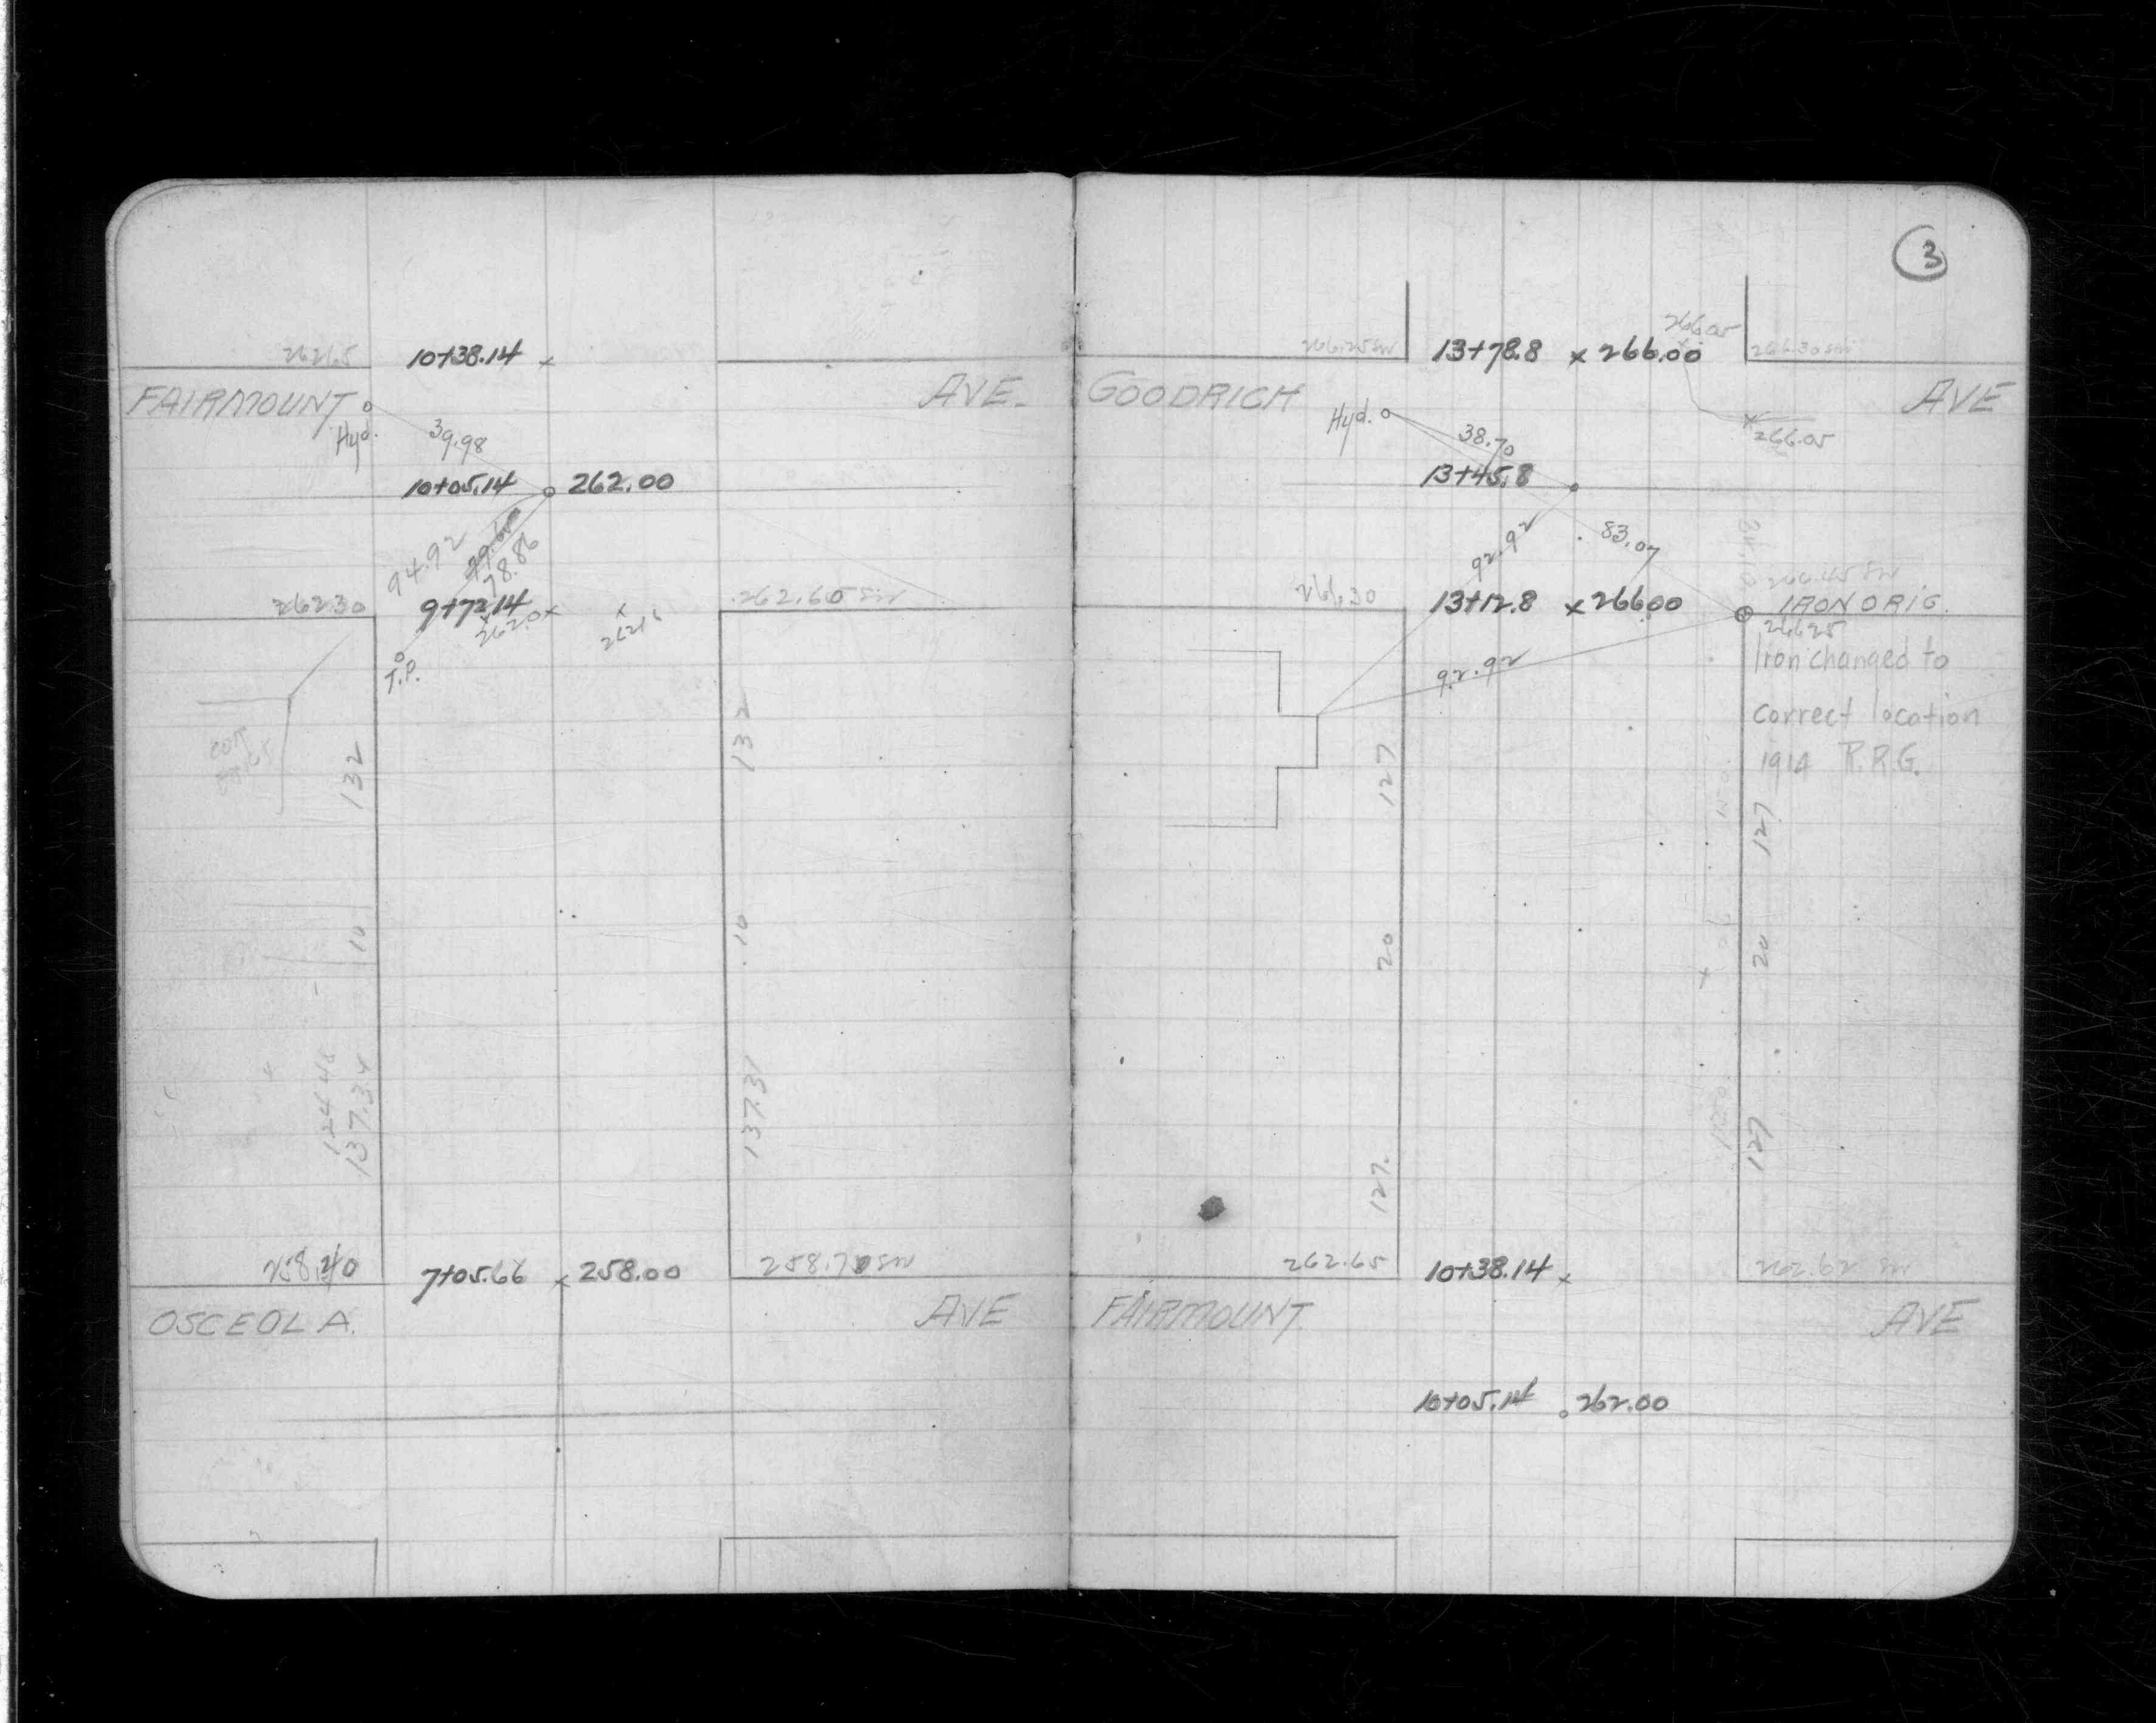 262.65 10+38.14 x
FAIRMOUNT AVE.
Hyd. 39.98
10+05.14 262.00
94.92 79.60 78.86
262.30 9+72.14 262.60 SW
262.0 x x
T.P.
132 132
10 10
124.46
137.34 137.31
258.40 7+05.66 x 258.00 258.70 SW
OSCEOLA AVE
3
266.05
266.25 SW 13+78.8 x 266.00 266.30 SW
GOODRICH AVE
Hyd. 38.70 x 266.05
13+45.8
92.92 83.07
266.45 SW
266.30 13+12.8 x 266.00 IRON ORIG.
266.25
92.92 Iron changed to
correct location
1914 R.R.G.
127 127
20 20
127. 127
262.65 10+38.14 x 262.62 SW
FAIRMOUNT AVE
10+05.14 262.00